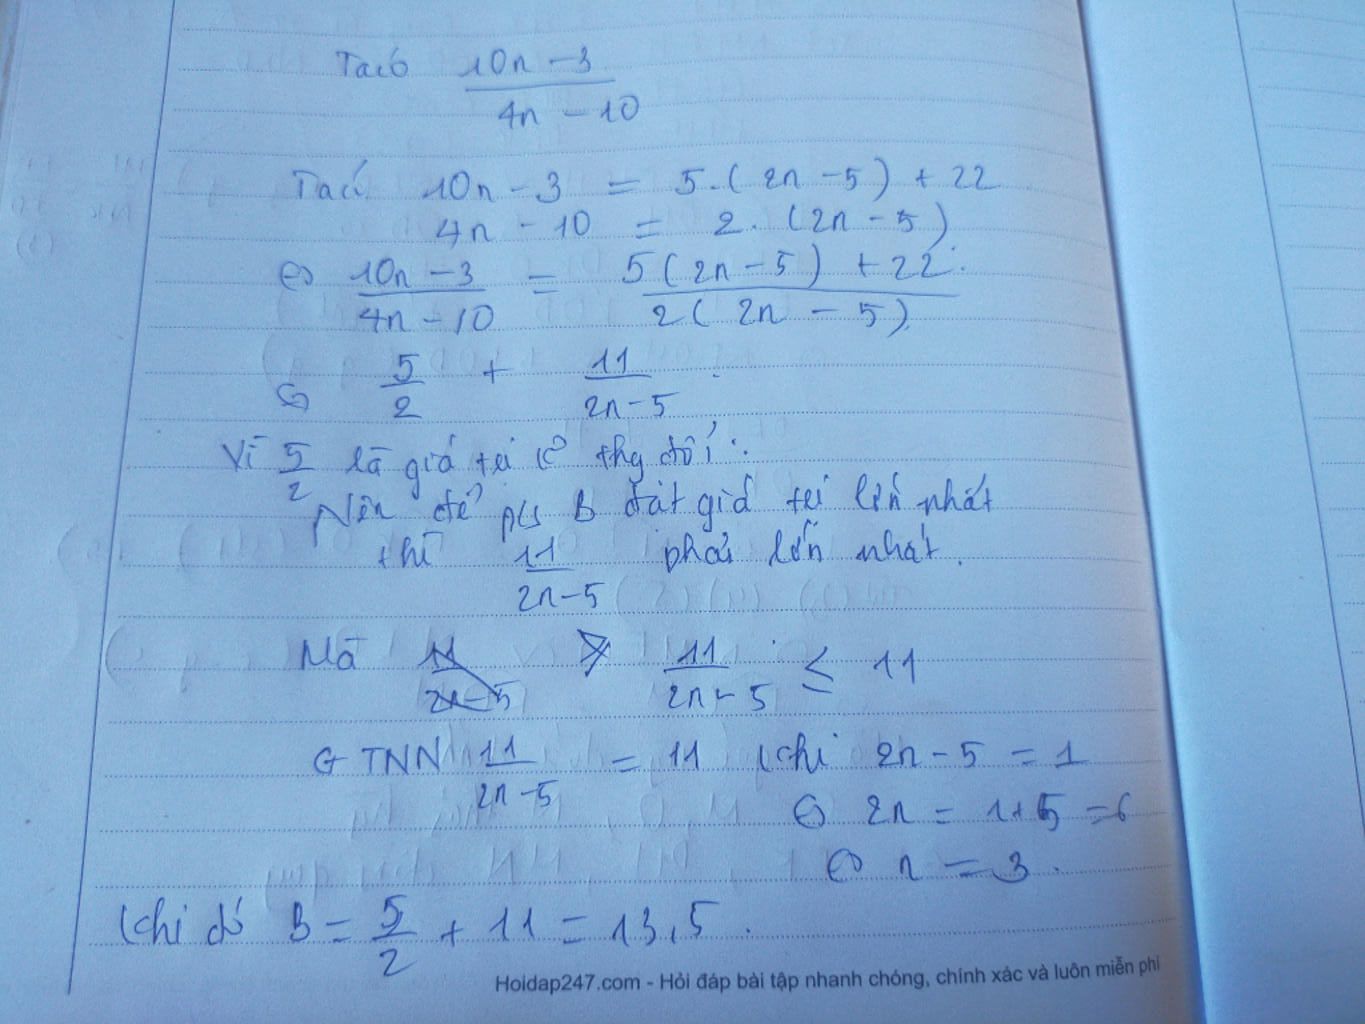 Ta có 10n - 3 / 4n - 10
Ta có 10n - 3 = 5.(2n - 5) + 22
4n - 10 = 2.(2n - 5)
⇔ 10n - 3 / 4n - 10 = 5(2n - 5) + 22 / 2(2n - 5)
⇔ 5/2 + 11 / 2n - 5
Vì 5/2 là giá trị k thay đổi
Nên để p/s B đạt giá trị lớn nhất
thì 11 / 2n - 5 phải lớn nhất.
Mà 11 / 2n - 5 ≤ 11
GTNN 11 / 2n - 5 = 11 khi 2n - 5 = 1
⇔ 2n = 1 + 5 = 6
⇔ n = 3.
Khi đó B = 5/2 + 11 = 13,5.
Hoidap247.com - Hỏi đáp bài tập nhanh chóng, chính xác và luôn miễn phí